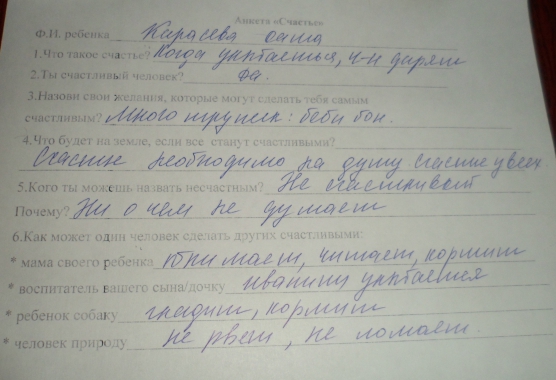 Анкета «Счастье»
Ф.И. ребенка Карасева Саша
1.Что такое счастье? Когда улыбаешься, ч-н дарят
2.Ты счастливый человек? да.
3.Назови свои желания, которые могут сделать тебя самым
счастливым? Много игрушек: беби бон.
4.Что будет на земле, если все станут счастливыми?
Счастье необходимо на душу счастье у всех
5.Кого ты можешь назвать несчастным? Не счастливый
Почему? Ни о чем не думает
6.Как может один человек сделать других счастливыми:
* мама своего ребенка обнимает, читает, кормит
* воспитатель вашего сына/дочку улыбается
* ребенок собаку гладит, кормит
* человек природу не рвет, не ломает.